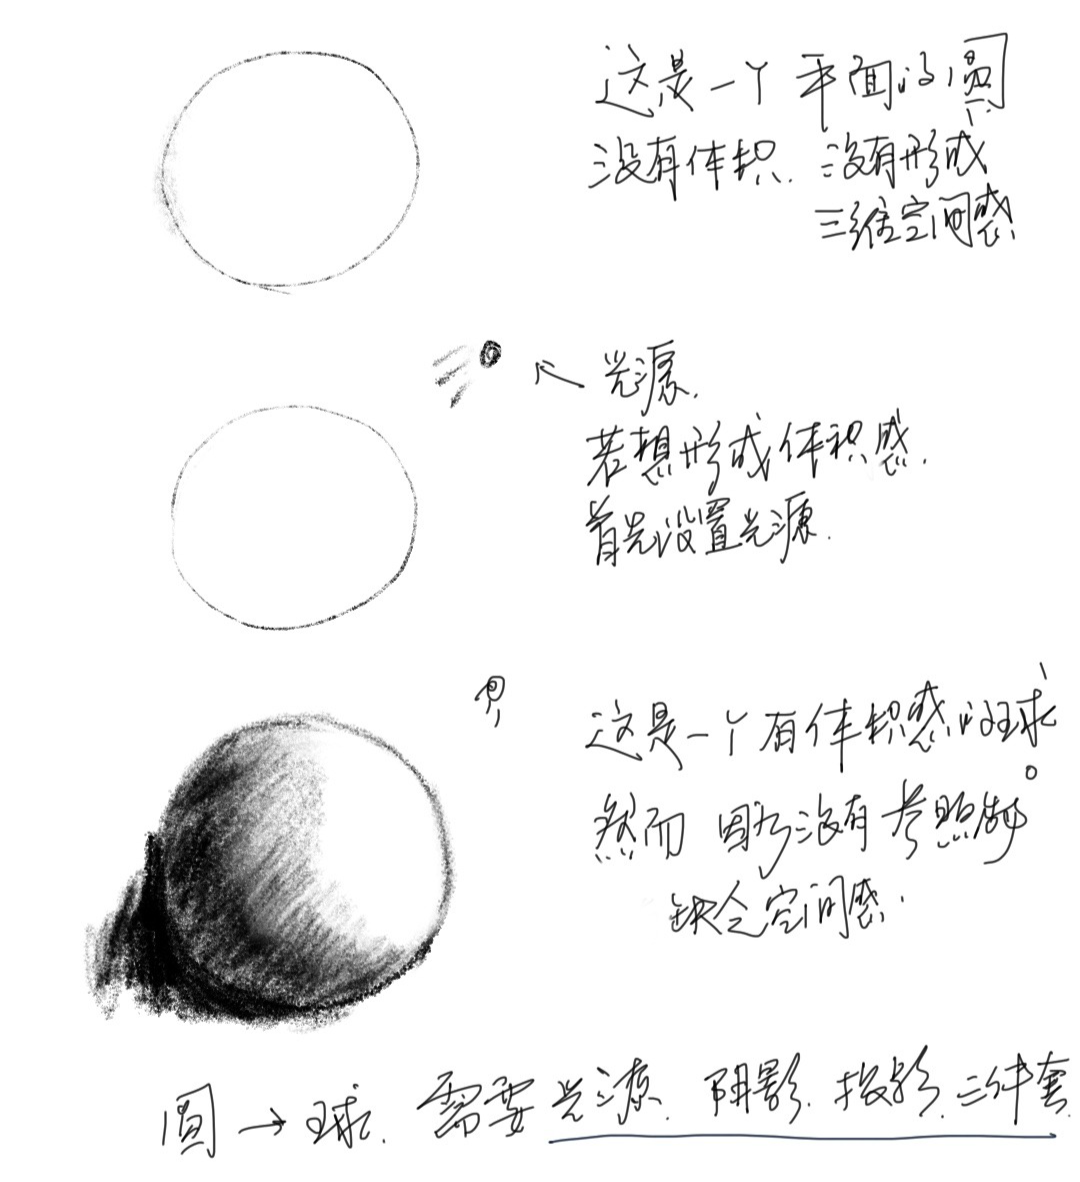 这是一个平面的圆
没有体积.没有形成
三维空间感
光源.
若想形成体积感.
首先设置光源.
这是一个有体积感的球
然而因为没有参照物
缺乏空间感.
圆→球.需要光源.阴影.投影.三件套